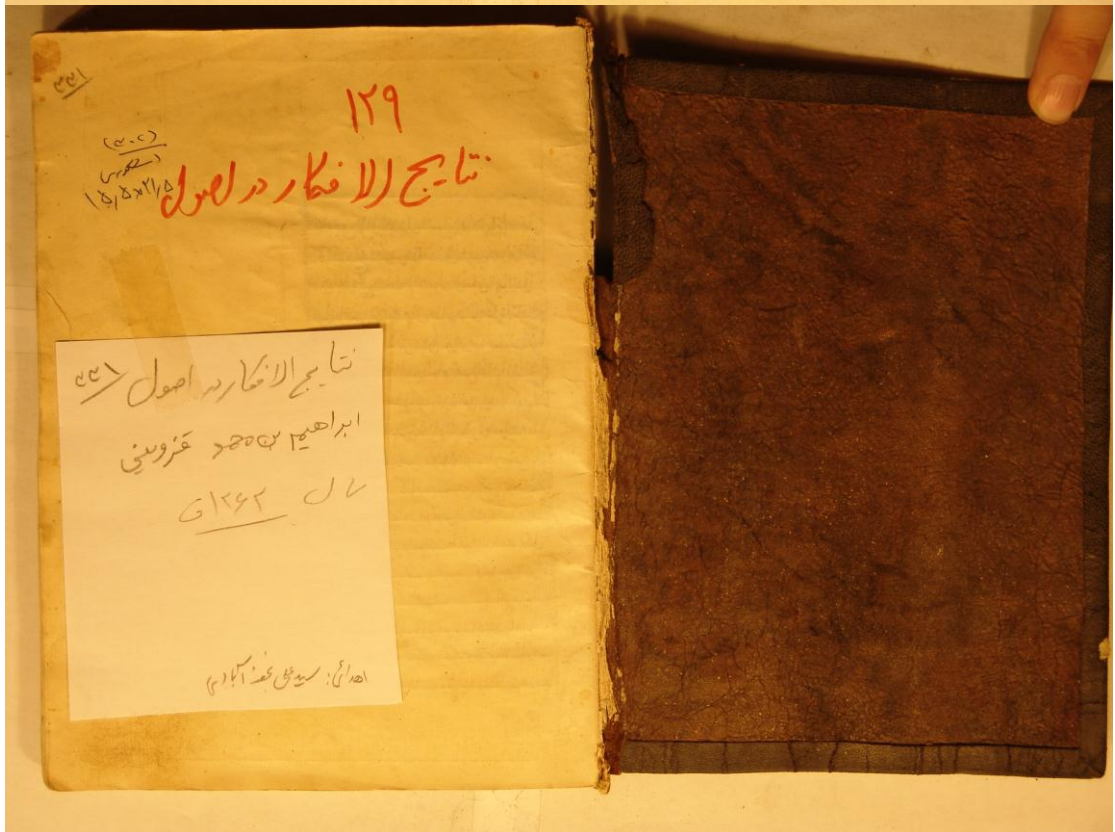 ۱۲۹
نتایج الافکار در اصول
۱۵٫۵×۲۱٫۵
نتایج الافکار در اصول
ابراهیم بن محمد قزوینی
سال ۱۲۶۲ق
اهدائی: سید علی